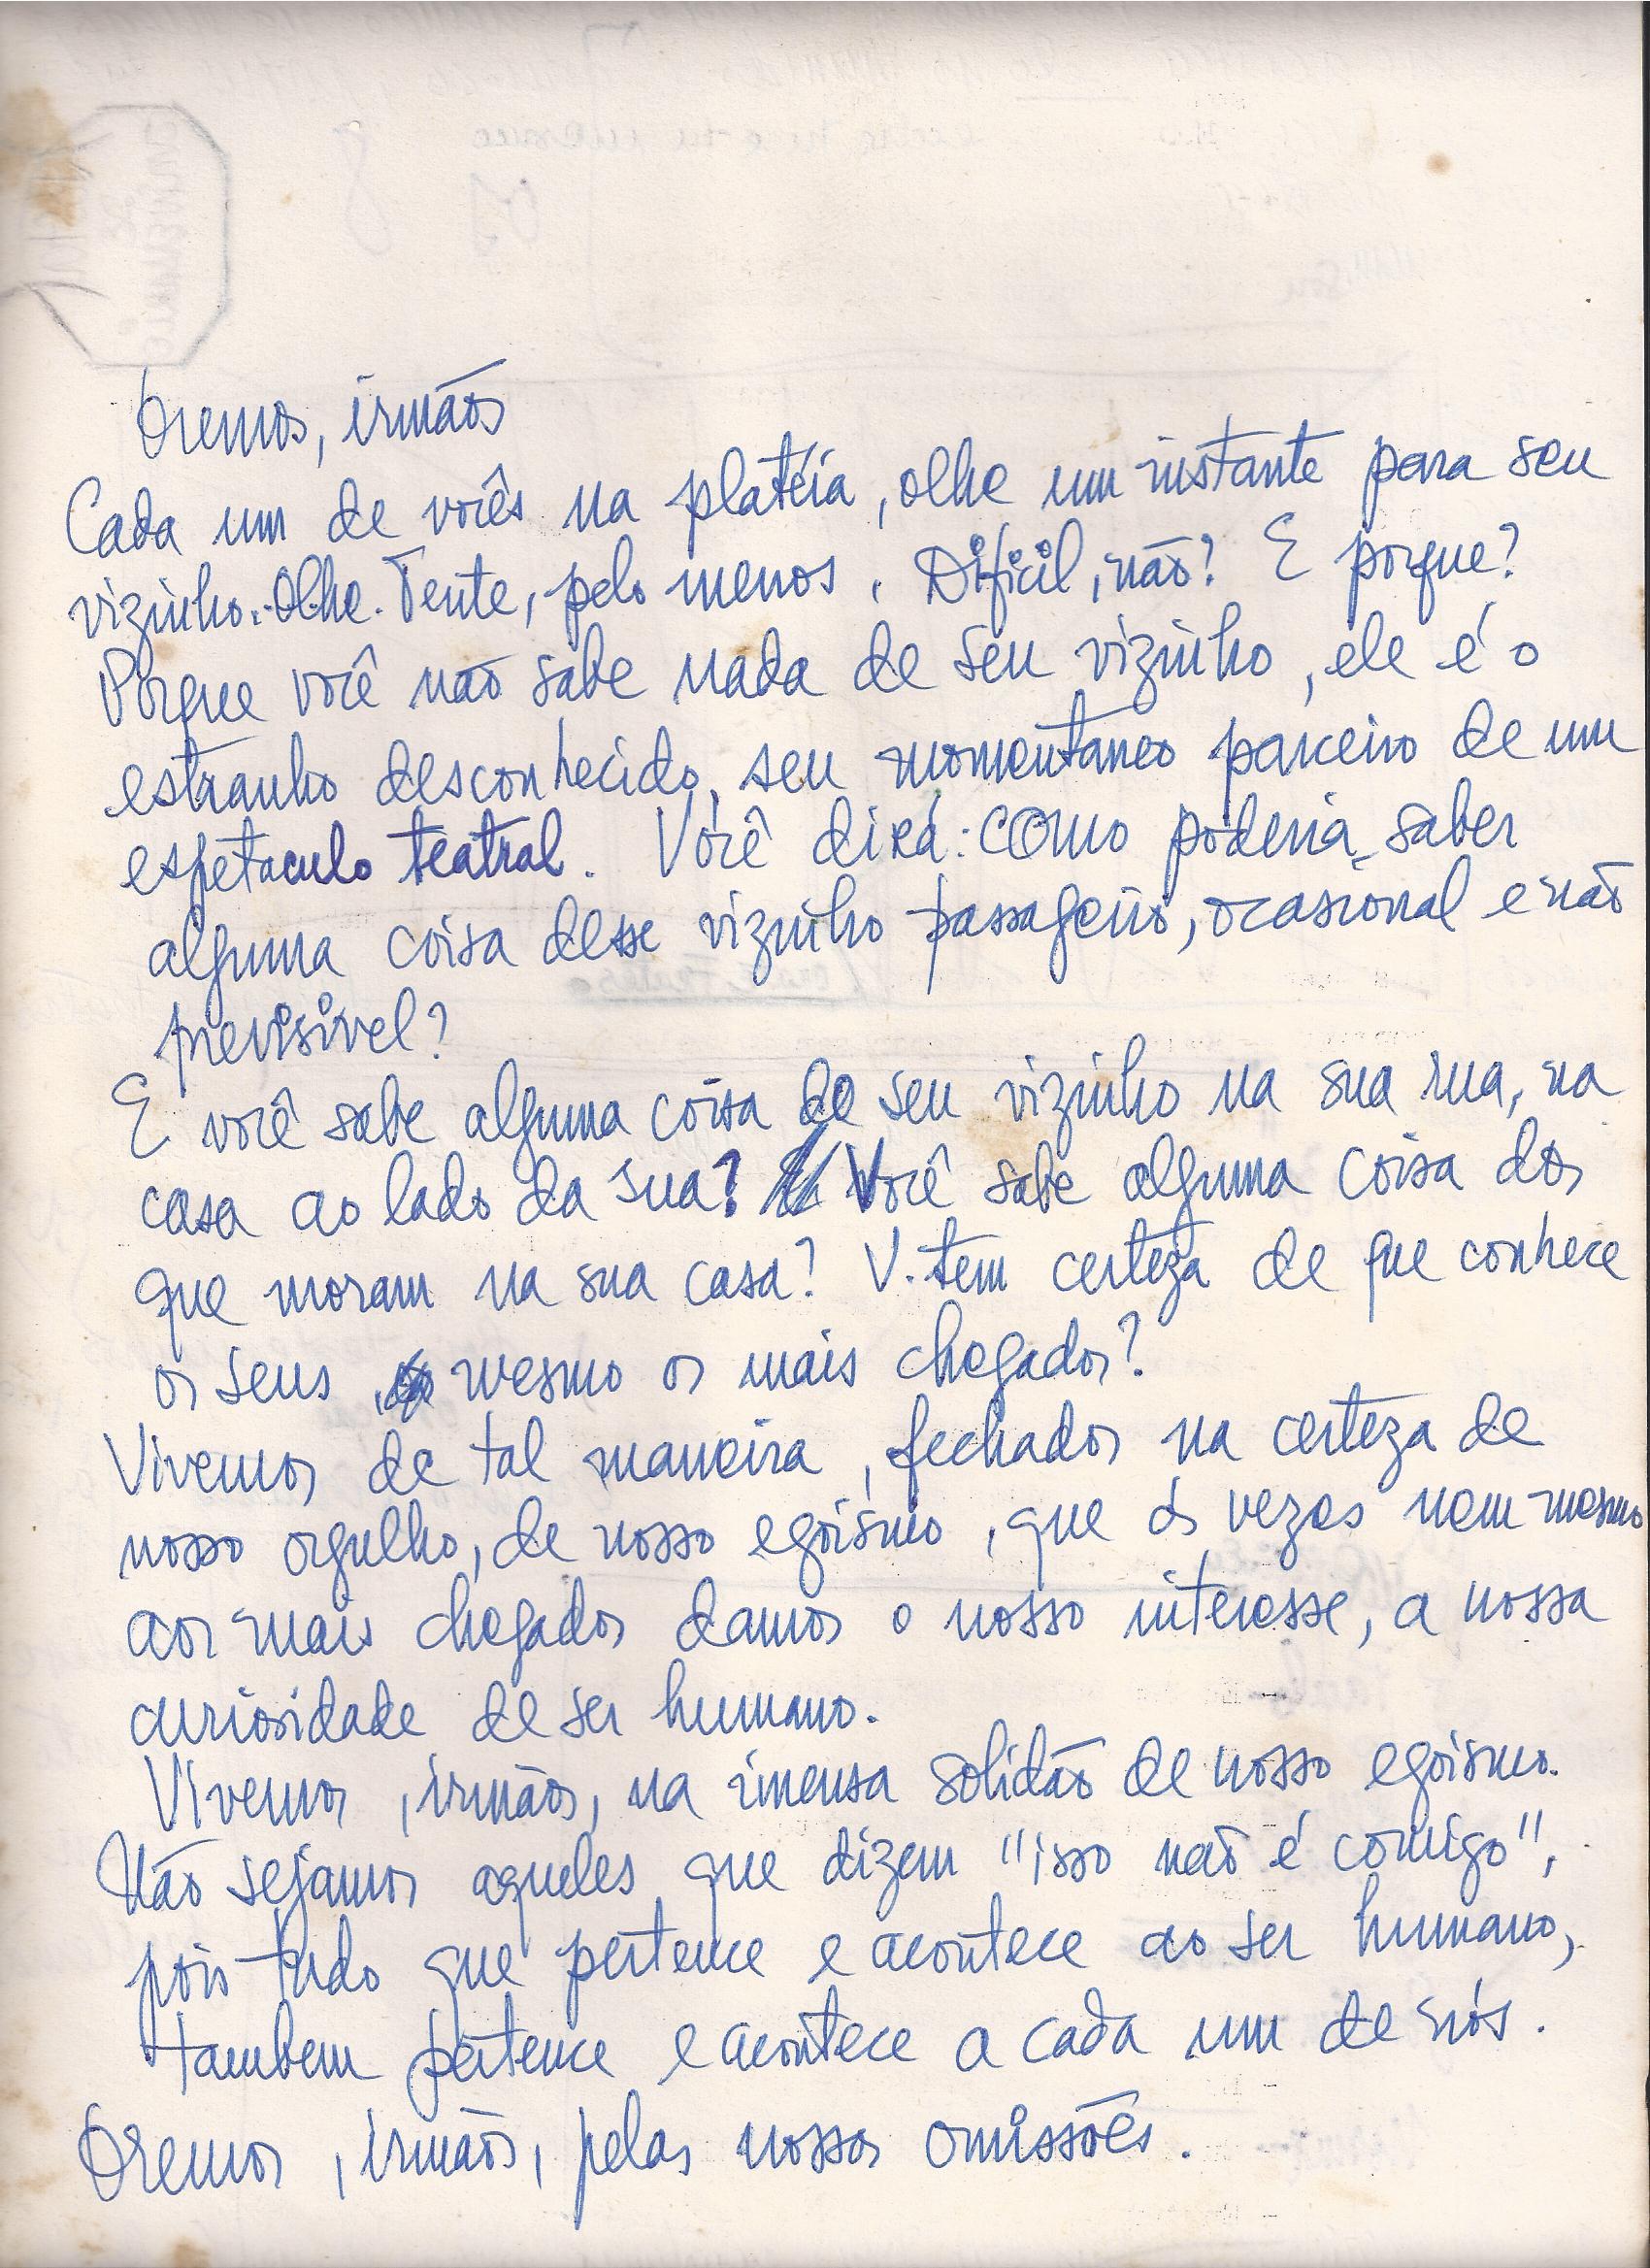 Oremos, irmãos
Cada um de vocês na platéia, olhe um instante para seu
vizinho. Olhe. Tente, pelo menos. Dificil, não? E porque?
Porque você não sabe nada de seu vizinho, ele é o
estranho desconhecido, seu momentaneo parceiro de um
espetaculo teatral. Você dirá: como poderia saber
alguma coisa desse vizinho passageiro, ocasional e não
previsivel?
E você sabe alguma coisa do seu vizinho na sua rua, na
casa ao lado da sua? Você sabe alguma coisa dos
que moram na sua casa? V. tem certeza de que conhece
os seus, mesmo os mais chegados?
Vivemos de tal maneira, fechados na certeza de
nosso orgulho, de nosso egoismo, que ás vezes nem mesmo
aos mais chegados damos o nosso interesse, a nossa
curiosidade de ser humano.
Vivemos, irmãos, na imensa solidão de nosso egoismo.
Não sejamos aqueles que dizem "isso não é comigo",
pois tudo que pertence e acontece ao ser humano,
tambem pertence e acontece a cada um de nós.
Oremos, irmãos, pelas nossas omissões.